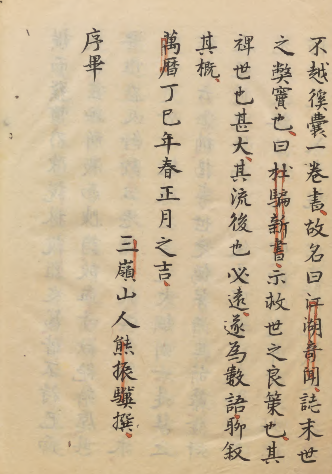 不越徯囊一卷書故名曰江湖奇聞誌末世
之獘竇也曰杜騙新書示救世之良策也其
裨世也甚大其流後也必遠遂為數語聊叙
其概
萬曆丁巳年春正月之吉
三嶺山人熊振驥撰
序畢